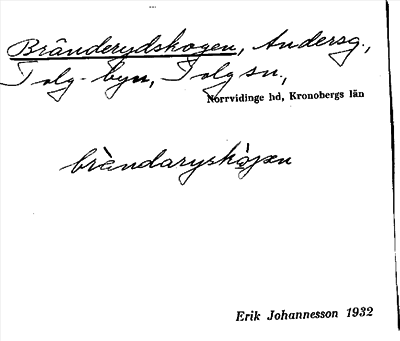 Bränderydskogen, Andersg.,
Tolg-byn, Tolg sn,
Norrvidinge hd, Kronobergs län
brὲndaryskògen
Erik Johannesson 1932